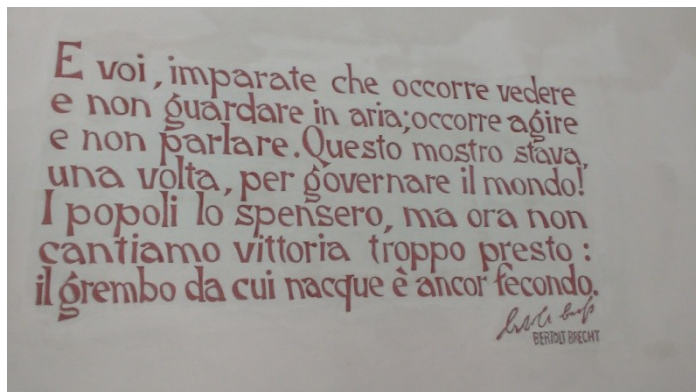 E voi, imparate che occorre vedere
e non guardare in aria; occorre agire
e non parlare. Questo mostro stava,
una volta, per governare il mondo!
I popoli lo spensero, ma ora non
cantiamo vittoria troppo presto:
il grembo da cui nacque è ancor fecondo.
BERTOLT BRECHT